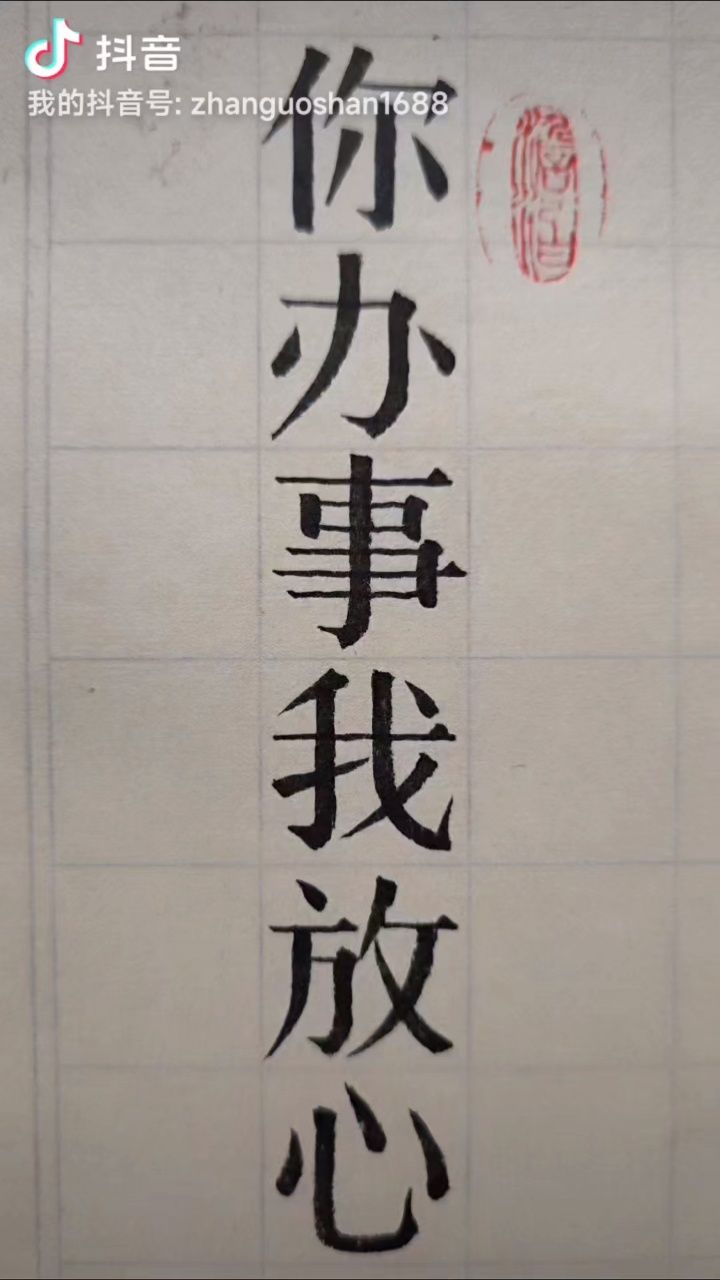 抖音
我的抖音号: zhanguoshan1688
你办事我放心